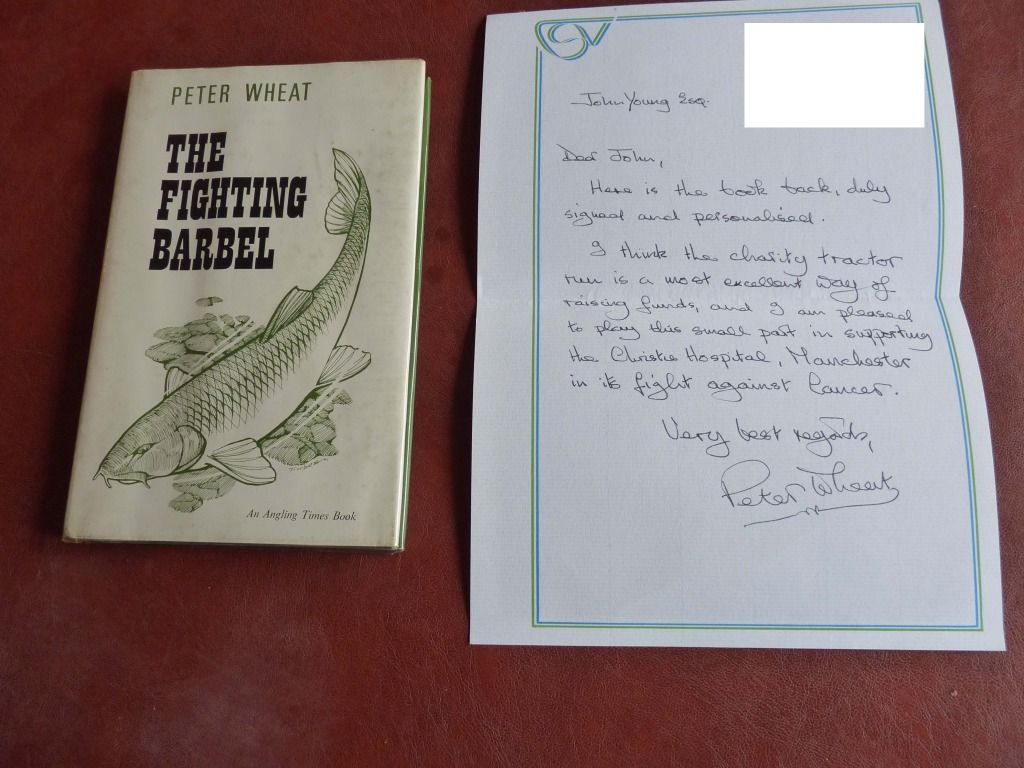 PETER WHEAT
THE
FIGHTING
BARBEL
An Angling Times Book
John Young Esq.
Dear John,
Here is the book back, duly
signed and personalised.
I think the charity tractor
run is a most excellent way of
raising funds, and I am pleased
to play this small part in supporting
the Christie Hospital, Manchester
in its fight against Cancer.
Very best regards,
Peter Wheat